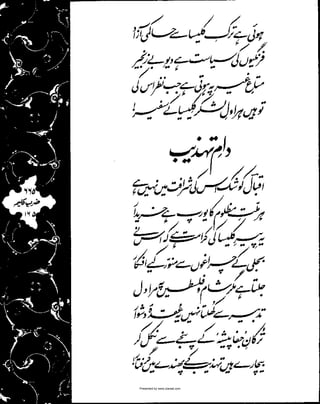 ہوئی ہے ترکِ کلیسا سے حاکمی آزاد
فرنگیوں کی سیاست ہے دیوِ بے زنجیر
متاعِ غیر پہ ہوتی ہے جب نظر اس کی
تو ہیں ہراول لشکر کلیسیا کے سفیر!
دامِ تہذیب
اقبال کو شک اس کی شرافت میں نہیں ہے
ہر ملتِ مظلوم کا یورپ ہے خریدار
یہ پیرِ کلیسا کی کرامت ہے کہ اس نے
بجلی کے چراغوں سے منور کیے افکار
جلتا ہے مگر شام و فلسطیں پہ مرا دل
تدبیر سے کھلتا نہیں یہ عقدۂ دشوار
ترکانِ 'جفا پیشہ' کے پنجے سے نکل کر
بیچارے ہیں تہذیب کے پھندے میں گرفتار!
۶۶۵
ضربِ کلیم
۱۶۵
Presented by www.ziaraat.com